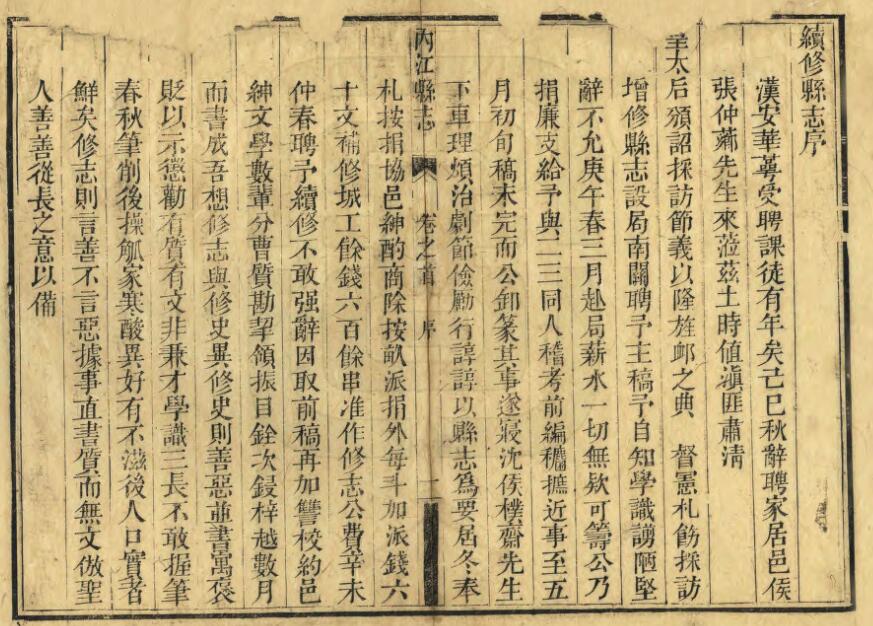 續修縣志序
漢安華蕚受聘課徒有年矣己巳秋辭聘家居邑侯
張仲薌先生來蒞茲土時値滇匪肅淸
皇太后頒詔採訪節義以隆旌卹之典 督憲札飭採訪
增修縣志設局南關聘予主稿予自知學識譾陋堅
辭不允庚午春三月赴局薪水一切無欵可籌公乃
捐廉支給予與二三同人稽考前編穮摭近事至五
月初旬稿未完而公卸篆其事遂寢沈侯樸齋先生
下車理煩治劇節儉勵行諄諄以縣志爲要居冬奉
內江縣志 卷之首 序 一
札按捐協邑紳酌商除按畝派捐外每斗加派錢六
十文補修城工餘錢六百餘串准作修志公費辛未
仲春聘予續修不敢强辭因取前稿再加讐校約邑
紳文學數輩分曹質勘挈領振目銓次鋟梓越數月
而書成吾想修志與修史異修史則善惡並書寓褒
貶以示懲勸有質有文非兼才學識三長不敢握筆
春秋筆削後操觚家寒酸異好有不滋後人口實者
鮮矣修志則言善不言惡據事直書質而無文倣聖
人善善從長之意以備